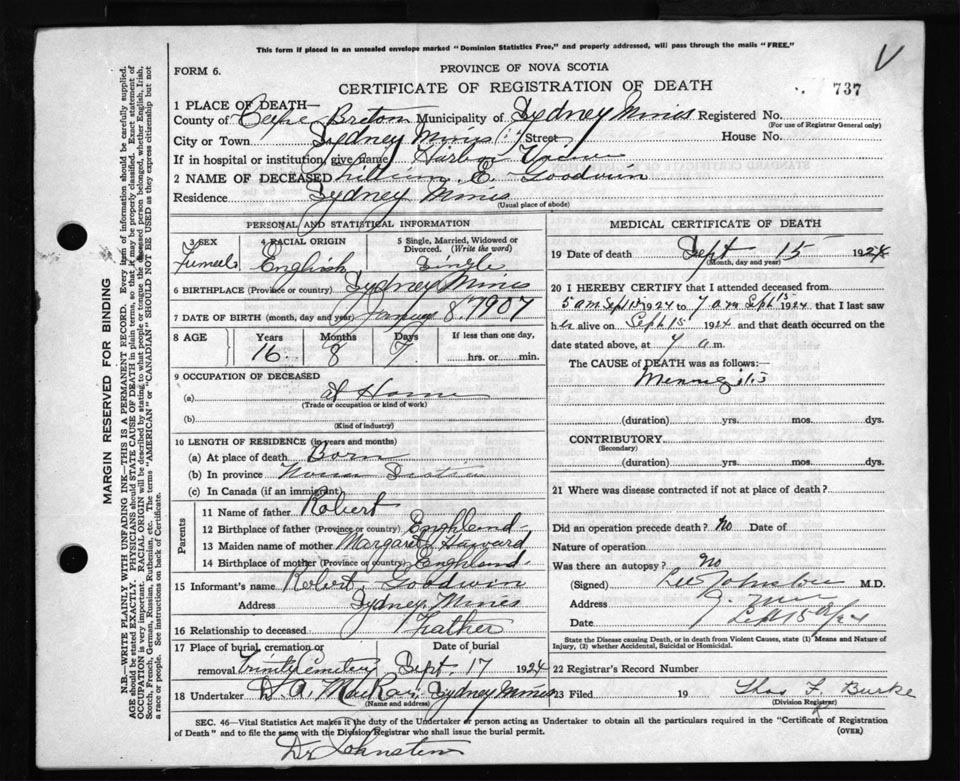 This form if placed in an unsealed envelope marked "Dominion Statistics Free," and properly addressed, will pass through the mails "FREE."
V
FORM 6.
PROVINCE OF NOVA SCOTIA
CERTIFICATE OF REGISTRATION OF DEATH
737
1 PLACE OF DEATH—
County of Cape Breton Municipality of Sydney Mines Registered No.
(For use of Registrar General only)
City or Town Sydney Mines Street House No.
If in hospital or institution, give name Harbor
2 NAME OF DECEASED E. Goodwin
Residence Sydney Mines
(Usual place of abode)
PERSONAL AND STATISTICAL INFORMATION
3 SEX
Female
4 RACIAL ORIGIN
English
5 Single, Married, Widowed or Divorced. (Write the word)
Single
6 BIRTHPLACE (Province or country) Sydney Mines
7 DATE OF BIRTH (month, day and year) January 8 1907
8 AGE Years Months Days If less than one day,
16 8 7 hrs. or min.
9 OCCUPATION OF DECEASED
(a) At Home
(Trade or occupation or kind of work)
(b)
(Kind of industry)
10 LENGTH OF RESIDENCE (in years and months)
(a) At place of death Born
(b) In province Nova Scotia
(c) In Canada (if an immigrant)
Parents
11 Name of father Robert
12 Birthplace of father (Province or country) England
13 Maiden name of mother Margaret Haward
14 Birthplace of mother (Province or country) England.
15 Informant's name Robert Goodwin
Address Sydney Mines
16 Relationship to deceased Father
17 Place of burial, cremation or removal Date of burial
Trinity Cemetery Sept. 17 1924
18 Undertaker D. A. MacRae Sydney Mines
(Name and address)
MEDICAL CERTIFICATE OF DEATH
19 Date of death Sept 15 1924
(Month, day and year)
20 I HEREBY CERTIFY that I attended deceased from
5 am Sept 1924 to 7 a.m Sept 15 1924 that I last saw
her alive on Sept 15 1924 and that death occurred on the
date stated above, at 7 a m.
The CAUSE of DEATH was as follows:
(duration) yrs. mos. dys.
CONTRIBUTORY
(Secondary)
(duration) yrs. mos. dys.
21 Where was disease contracted if not at place of death?
Did an operation precede death? No Date of
Nature of operation
Was there an autopsy? No
(Signed) Johnstone M.D.
Address
Date Sept 15/24
State the Disease causing Death, or in death from Violent Causes, state (1) Means and Nature of Injury, (2) whether Accidental, Suicidal or Homicidal.
22 Registrar's Record Number
23 Filed 19 Thos F Burke
(Division Registrar)
SEC. 46—Vital Statistics Act makes it the duty of the Undertaker or person acting as Undertaker to obtain all the particulars required in the "Certificate of Registration
of Death" and to file the same with the Division Registrar who shall issue the burial permit.
(OVER)
Dr Johnsten
MARGIN RESERVED FOR BINDING
N.B.—WRITE PLAINLY WITH UNFADING INK—THIS IS A PERMANENT RECORD. Every item of information should be carefully supplied.
AGE should be stated EXACTLY. PHYSICIANS should STATE CAUSE OF DEATH in plain terms, so that it may be properly classified. Exact statement of
OCCUPATION is very important. RACIAL ORIGIN will be described by stating to what people or tongue the deceased person belonged, whether English, Irish,
Scotch, French, German, Russian, Ruthenian, etc. The terms "AMERICAN" or "CANADIAN" SHOULD NOT BE USED as they express citizenship but not
a race or people. See instructions on back of Certificate.